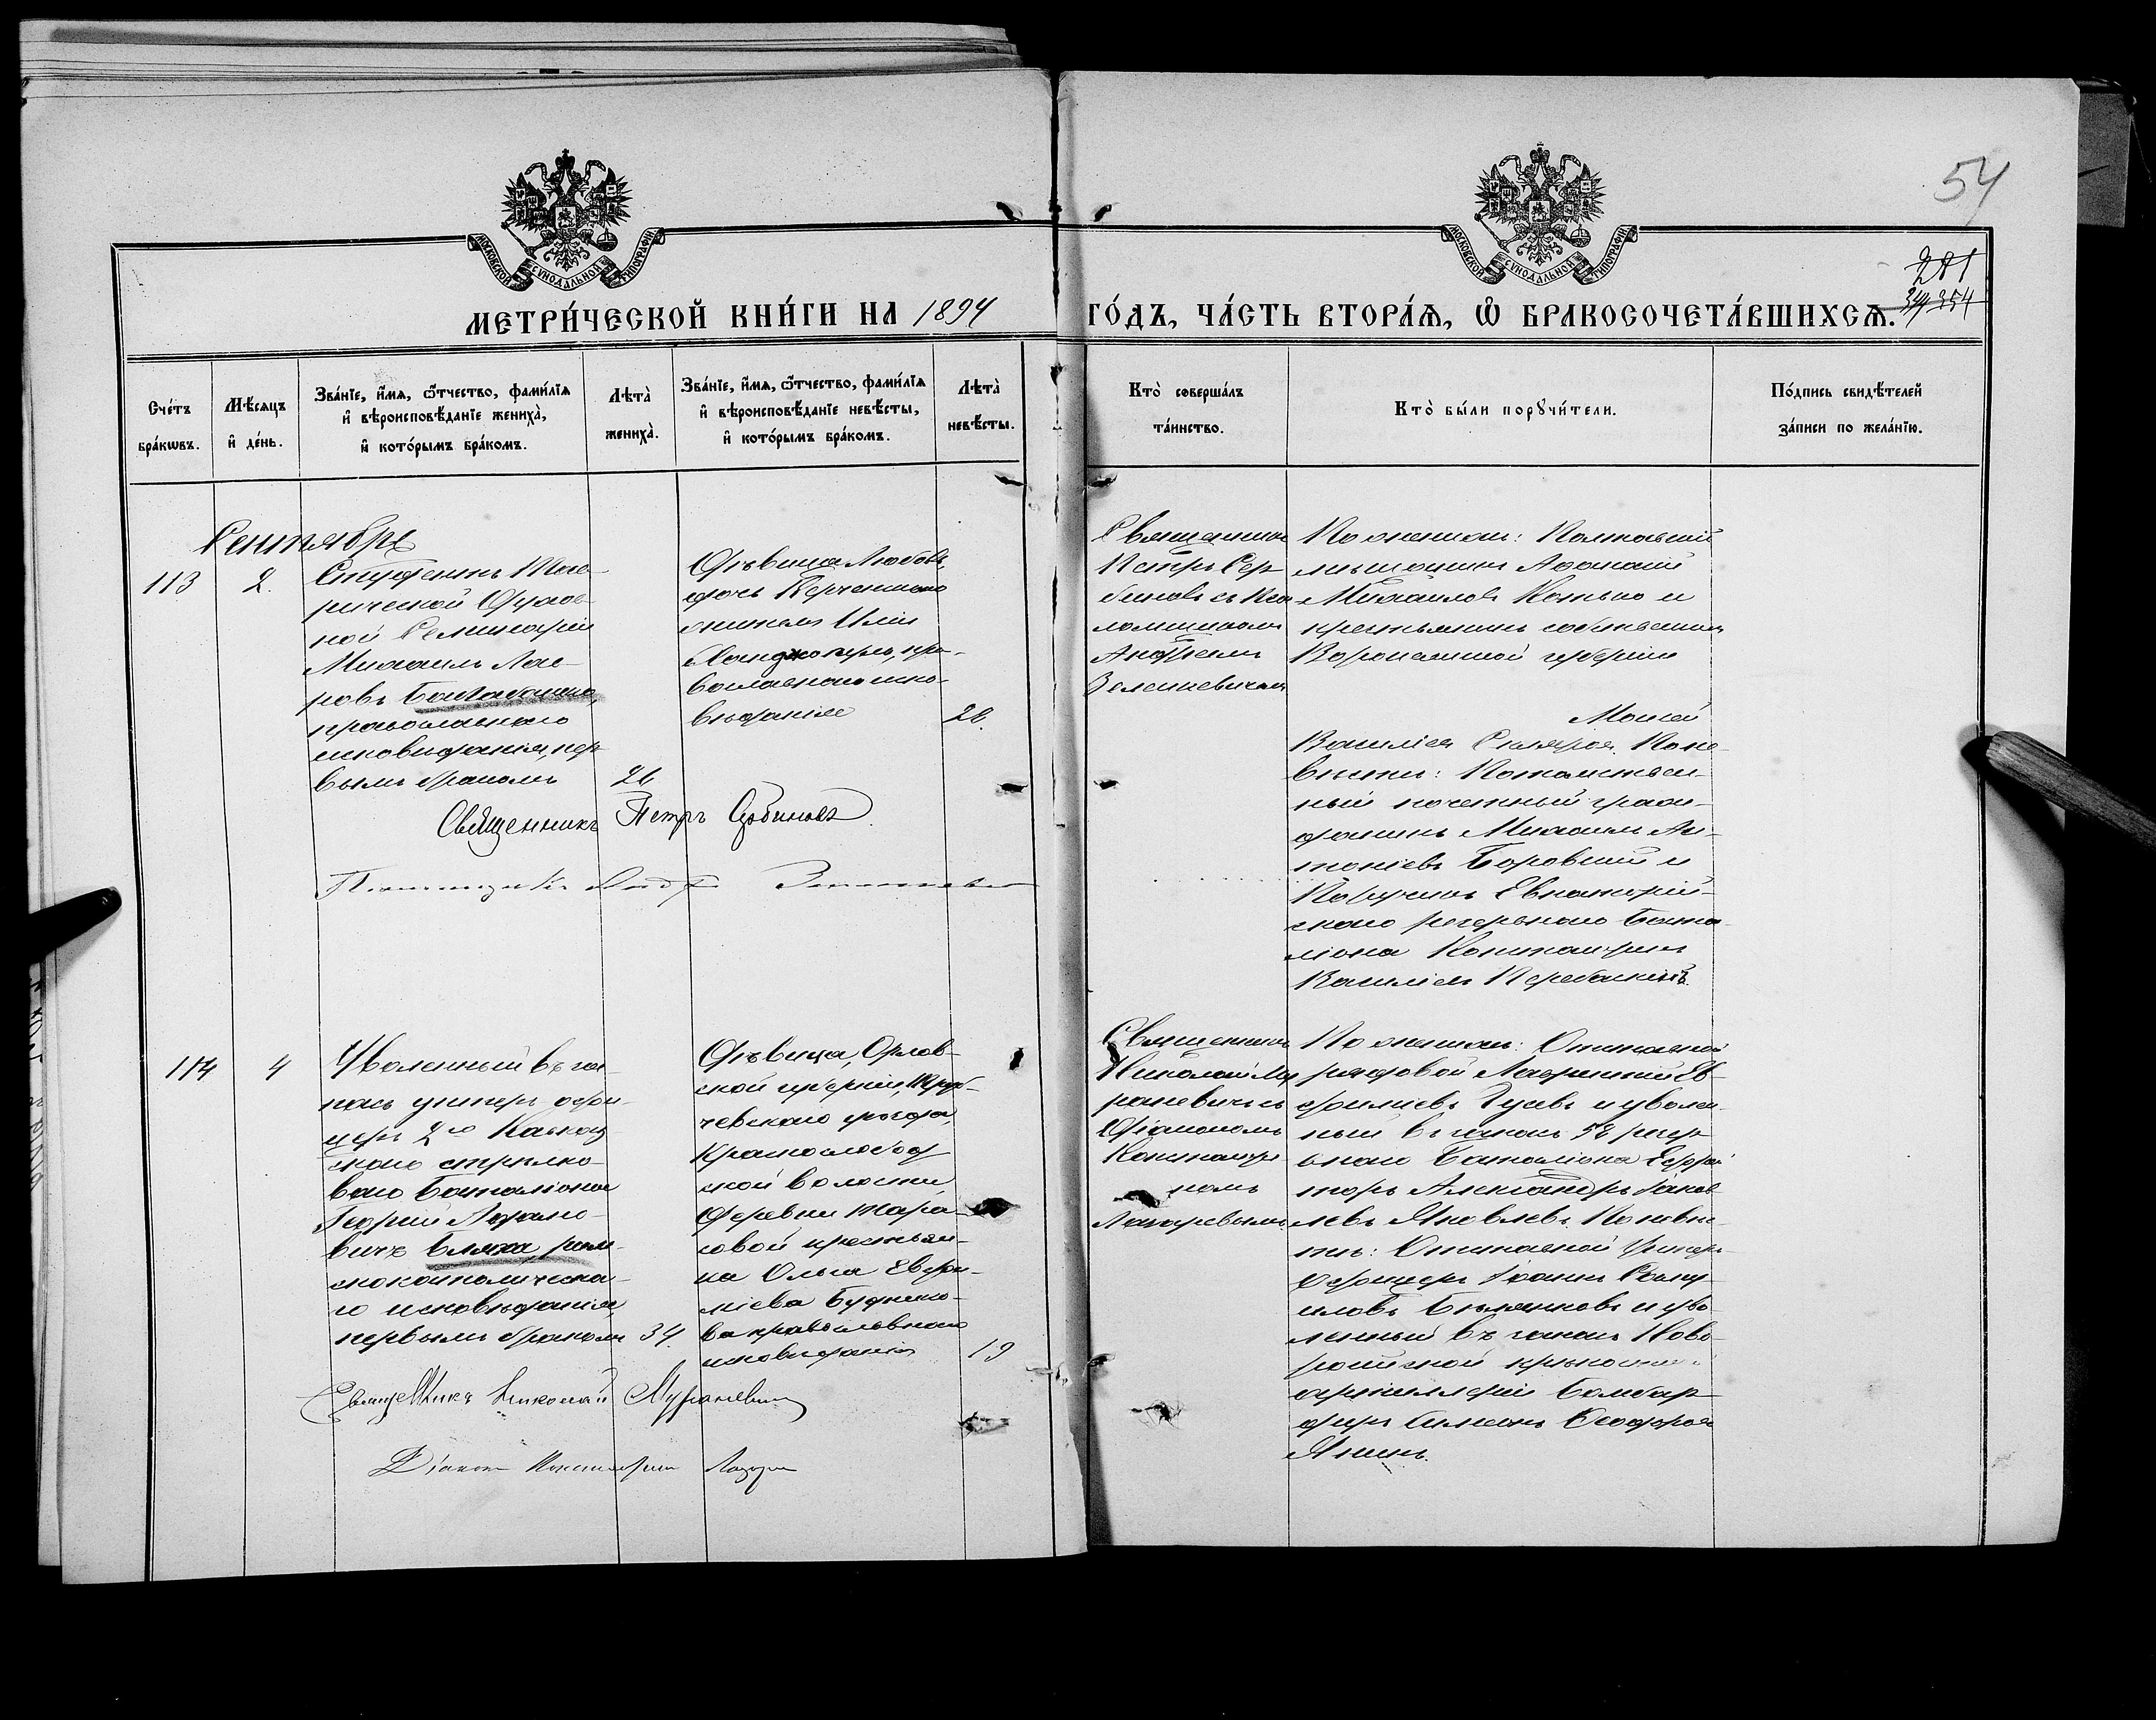 54
281
354
МОСКОВСКОЙ СѴНОДАЛЬНОЙ ТИПОГРАФІИ
МОСКОВСКОЙ СѴНОДАЛЬНОЙ ТИПОГРАФІИ
МЕТРИ́ЧЕСКОЙ КНИ́ГИ НА 1894 ГО́ДЪ, ЧА́СТЬ ВТОРА́Ѧ, Ѽ БРАКОСОЧЕТА́ВШИХСѦ.
Сче́тъ бра́кѡвъ.
Мѣ́сяцъ и҆ де́нь.
Зва́нїе, и҆́мѧ, ѻ҆́тчество, фами́лїѧ
и҆ вѣроисповѣ́данїе жениха̀,
и҆ кото́рымъ бра́комъ.
Лѣта̀ жениха̀.
Зва́нїе, и҆́мѧ, ѻ҆́тчество, фами́лїѧ
и҆ вѣроисповѣ́данїе невѣ́сты,
и҆ кото́рымъ бра́комъ.
Лѣта̀ невѣ́сты.
Кто̀ соверша́лъ та́инство.
Кто̀ бы́ли порꙋчи́тели.
По́дпись свидѣ́телей за́писи по жела́нїю.
Сентябрь
113
2.
Студентъ Тав-
рической Духов-
ной Семинаріи
Михаилъ Лав-
ровъ
православнаго
исповѣданія, пер
вымъ бракомъ
26
Дѣвица Любовь,
дочь Керченскаго
жителя Иліи
пра-
вославнаго испо-
вѣданія
26.
Священникъ
Петръ Сер
биновъ съ Пса
ломщикомъ
Андреемъ
Зеленкевичемъ
По женихѣ:
Михаиловъ Котько и
крестьянинъ собственникъ
Воронежской губерніи
Мосей
Василіевъ Скляровъ. По не-
вѣстѣ: Потомствен-
ный почетный граж-
данинъ Михаилъ Ан-
тоніевъ Боровскій и
Поручикъ Евпаторій-
скаго резервнаго Бата
ліона Константинъ
Василіевъ
Священникъ Петръ Сербиновъ
114
4
Уволенный въ за-
пасъ унтеръ офи-
церъ 2го Кавказ
скаго стрѣлко-
ваго Баталіона
Георгій Адамо-
вичъ Бляха, рим-
скокатолическа-
го исповѣданія,
первымъ бракомъ
34.
Дѣвица, Орлов-
ской губерніи, Труб-
чевскаго уѣзда,
Краснослобод
ской волости,
Деревни Тара-
совой крестьян-
ка Ольга Евфи-
міева
ва православнаго
исповѣданія
19
Священникъ
Николай Му
раневичъ съ
Діакономъ
Константи-
номъ
Лазаревымъ
По женихѣ: Отставной
рядовой Лаврентій Ев-
филіевъ Гусевъ и уволен-
ный въ запасъ 58 резер
внаго Баталіона Ефрей
торъ Александръ Іаков
левъ Яковлевъ. По невѣс-
тѣ: Отставной Унтеръ
Офицеръ Іоаннъ Саму-
иловъ и уво
ленный въ запасъ Ново-
россійской крѣпостной
артиллеріи Бомбар
диръ Симеонъ Ѳеодоровъ
Янинъ.
Священникъ Николай Мураневичъ
Діаконъ Константинъ Лазарев